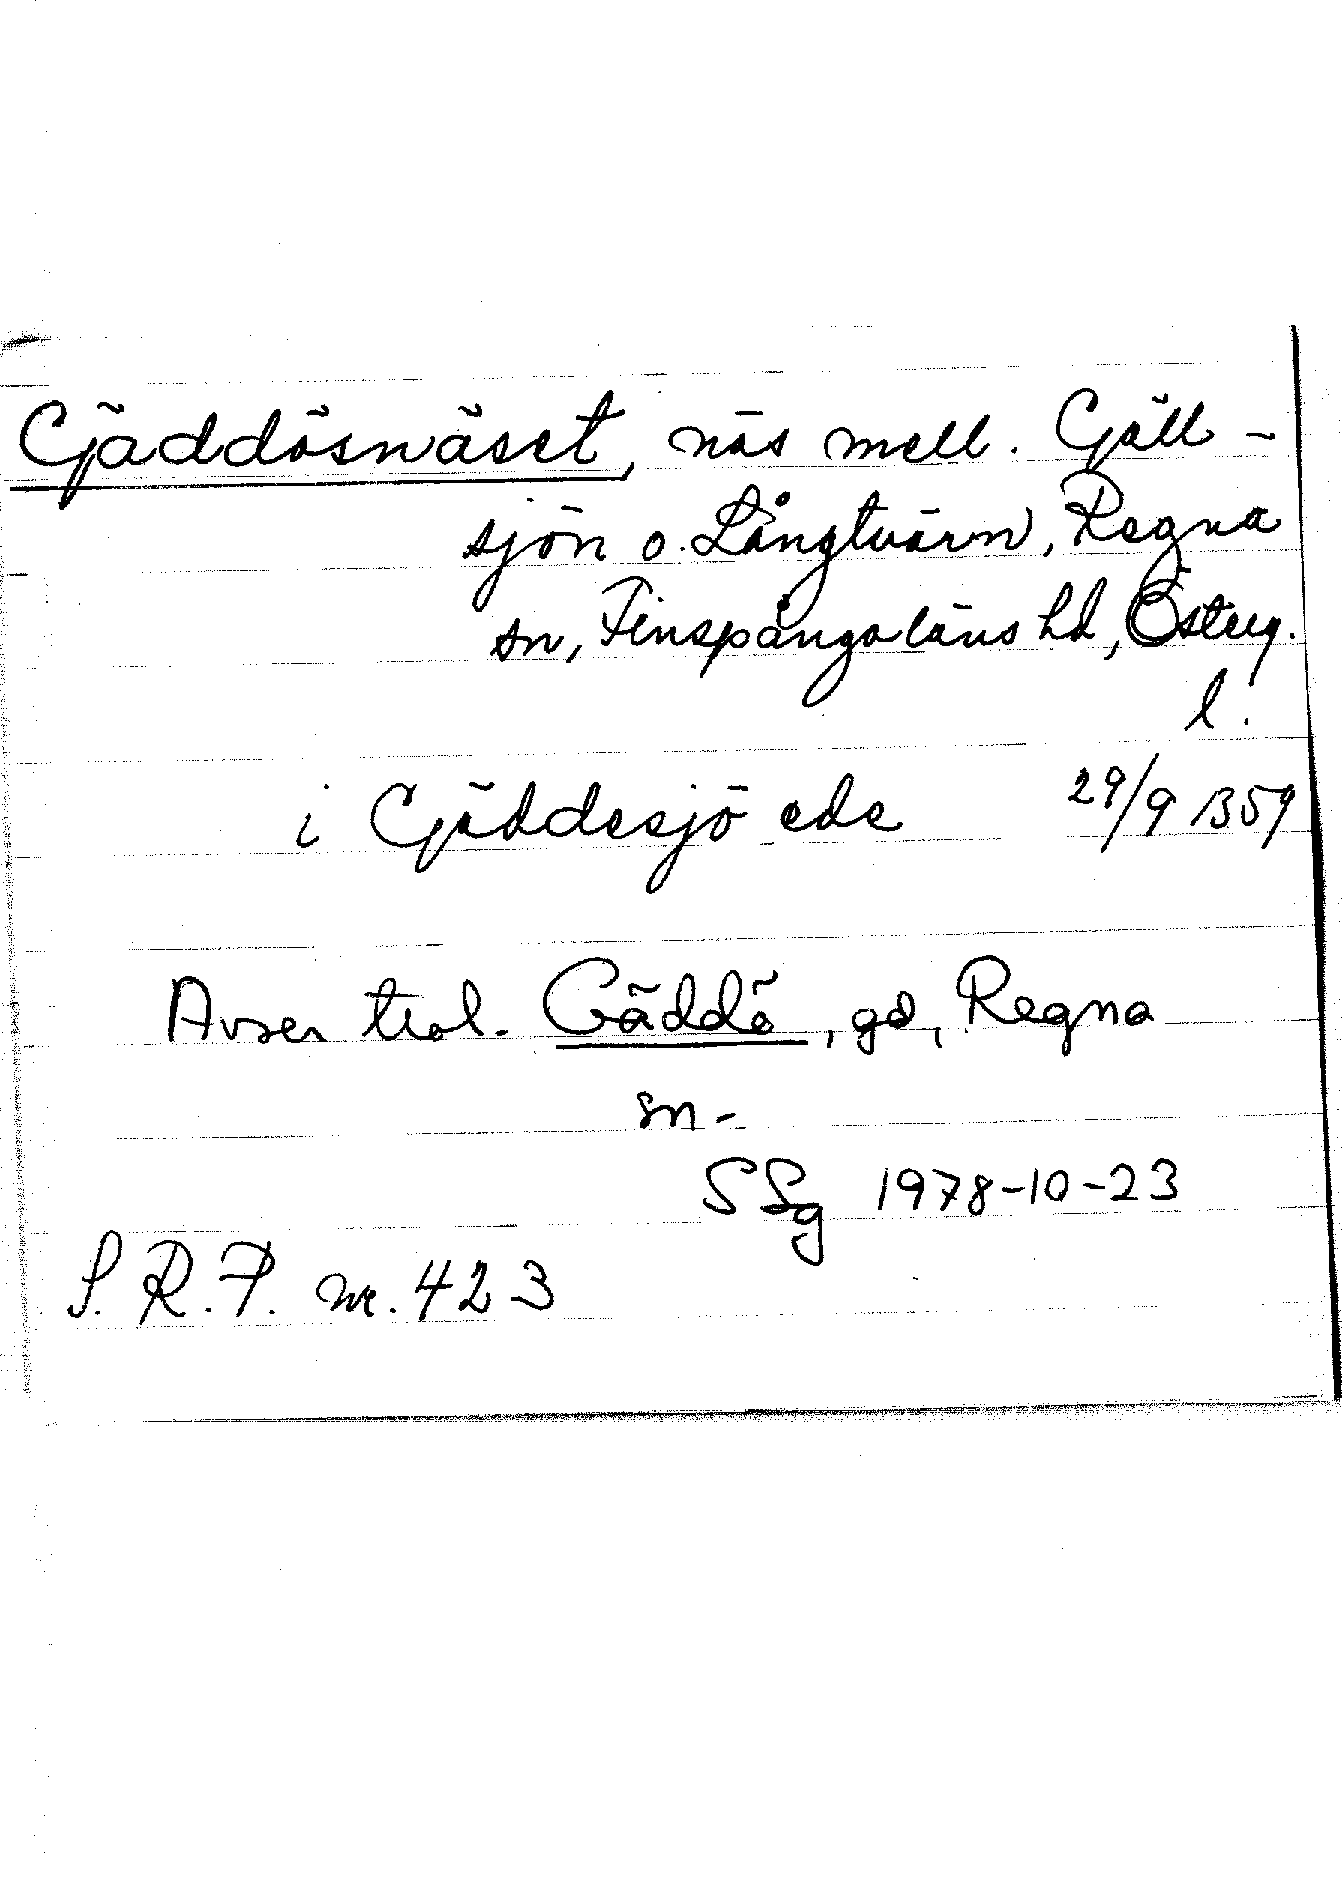 Gäddösnäset, näs mell. Gäll-
sjön o. Långtvärn, Regna
sn, Finspånga läns hd, Österg.
l.
i Gäddesjö ede 29/9 1359
Avser trol. Gäddö, gd, Regna
sn.
SSg 1978-10-23
S.R.P. nr. 423